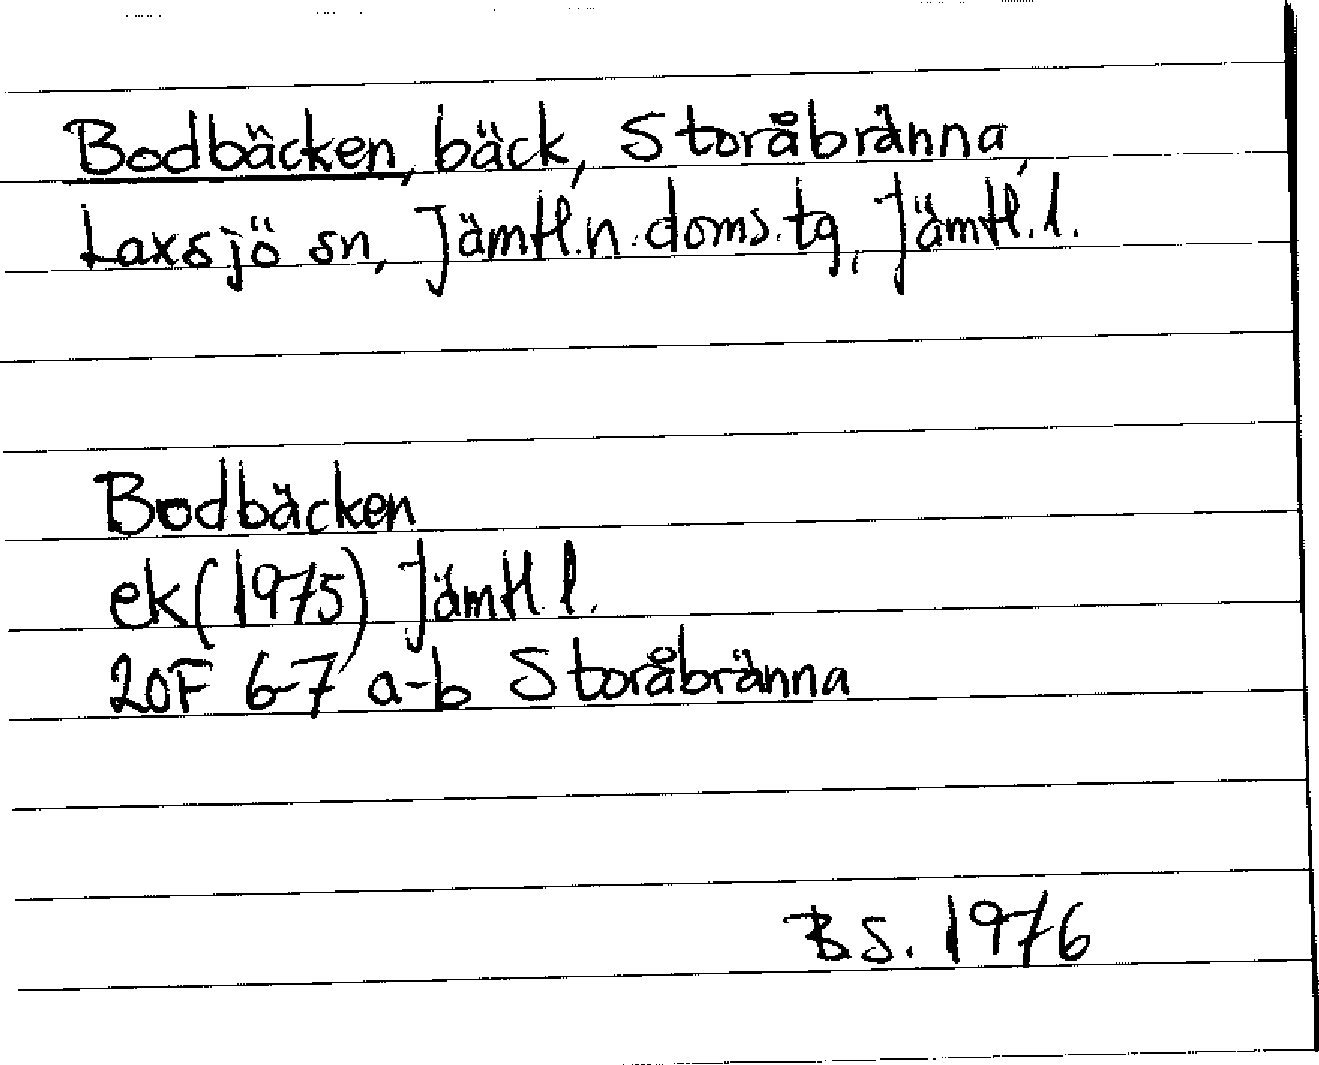 Bodbäcken, bäck, Storåbränna,
Laxsjö sn, Jämtl.n.doms.tg, Jämtl.l.
Bodbäcken
ek(1975) Jämtl.l.
20F 6-7 a-b Storåbränna
B.S. 1976